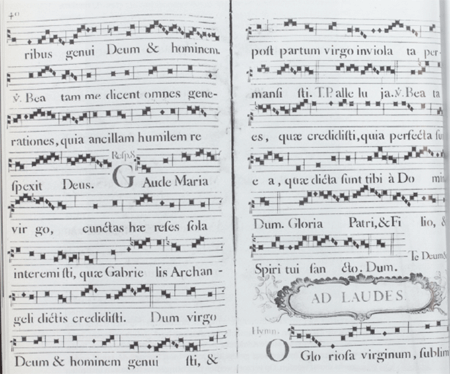 ribus genui Deum & hominem.
℣. Bea tam me dicent omnes gene-
rationes, quia ancillam humilem re
Resp. 8.
spexit Deus. Gaude Maria
vir go, cunctas hæ reses sola
interemi sti, quæ Gabrie lis Archan -
geli dictis credidisti. Dum virgo
Deum & hominem genui sti, &
post partum virgo inviola ta per-
mansi sti. T.P. alle lu ja. ℣. Bea ta
es, quæ credidisti, quia perfecta su
e a, quæ dicta sunt tibi à Do mi
Dum. Gloria Patri, & Fi lio, &
Te Deum
Spiri tui san cto. Dum.
AD LAUDES
Hymn.
O Glo riosa virginum, sublim